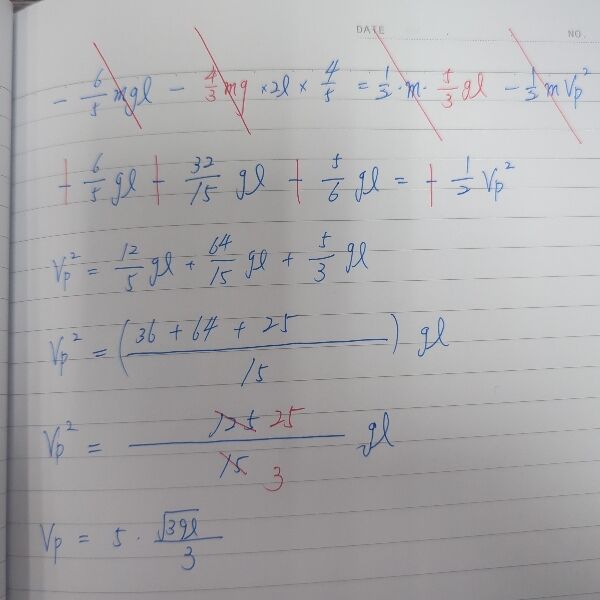 DATE NO.
- 6/5 mgl - 4/3 mg × 2l × 4/5 = 1/3 · m · 5/3 gl - 1/3 m Vp²
+ 6/5 gl + 32/15 gl + 5/6 gl = + 1/2 Vp²
Vp² = 12/5 gl + 64/15 gl + 5/3 gl
Vp² = (36 + 64 + 25 / 15) gl
Vp² = 125 25 / 15 3 gl
Vp = 5 · √3gl / 3